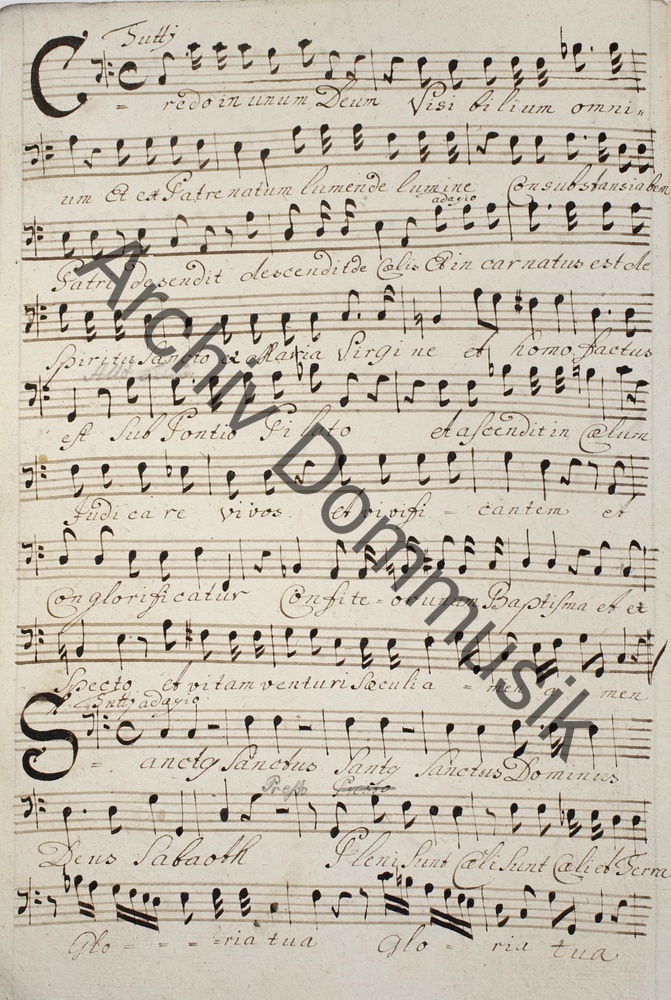 Tutti
Credo in unum Deum Visi bilium omni=
um Et ex Patre natum lumen de lumine Consubstansialem
adagio
Patri desendit descendit de Cœlis Et in carnatus est de
Spiritu Sancto ex Maria Virgi ne et homo factus
est Sub Pontio Pilato et ascendit in Cœlum
Judicare vivos et vivifi = cantem et
Conglorificatur Confite = or unum Baptisma et ex
specto et vitam venturi Sæculi a = men a men
Tutti adagio
Sanctq Sanctus Santq Sanctus Dominus
Presto
Deus Sabaoth Pleni Sunt Cœli Sunt Cœli et Terra
Glo = = = =ria tua Glo = ria tua
Archiv Dommusik